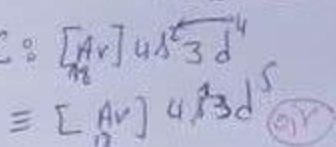 : [Ar] 4s² 3d⁴
≡ [Ar] 4s¹ 3d⁵